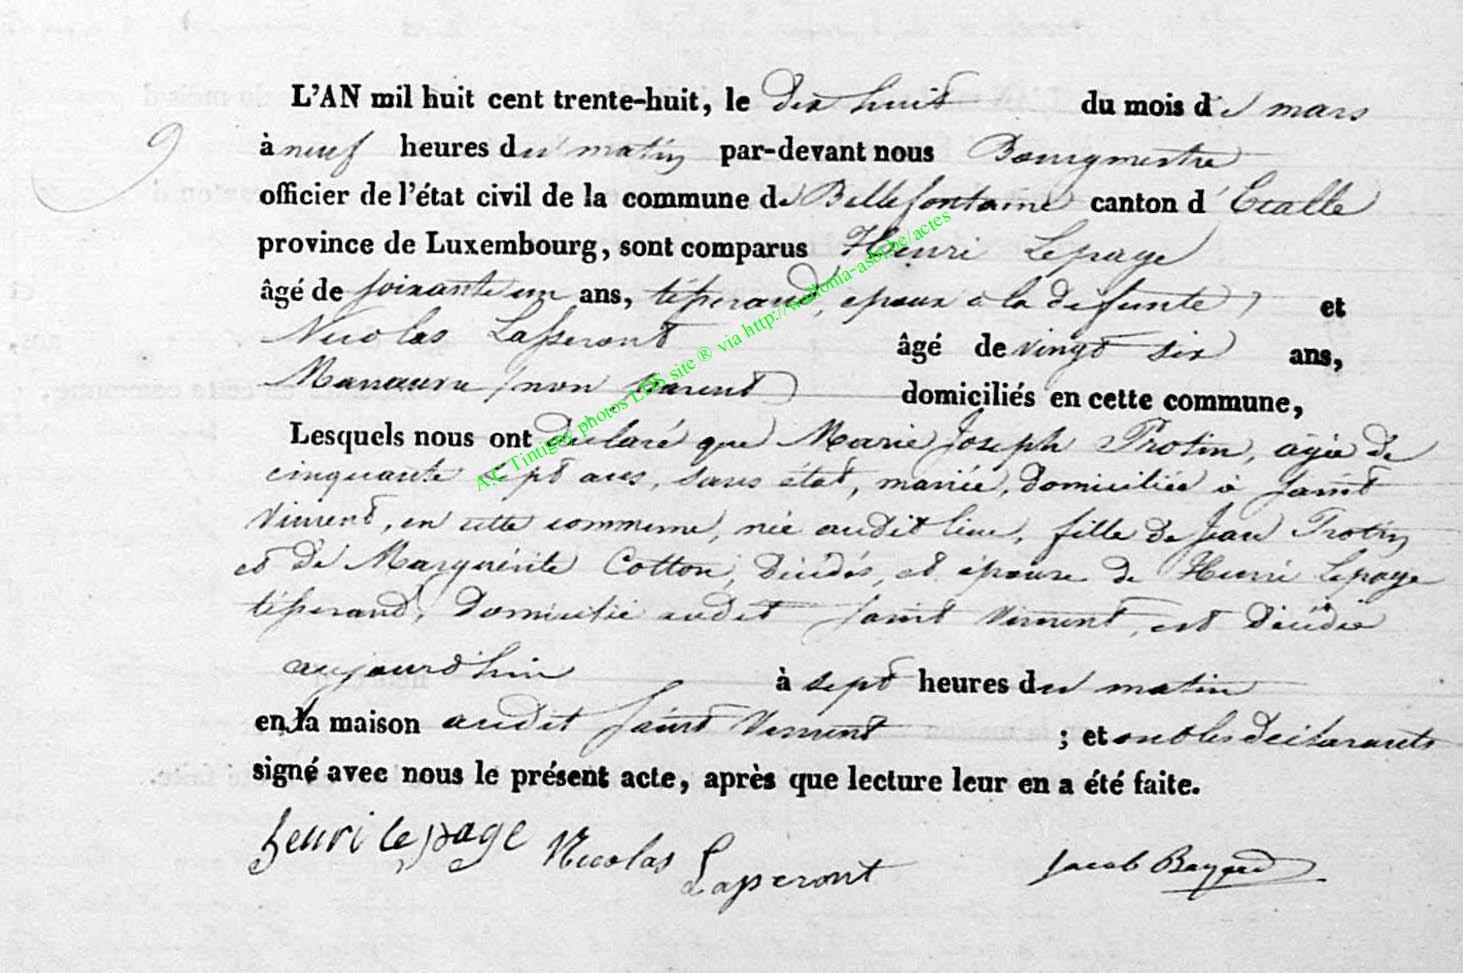 9
L'AN mil huit cent trente-huit, le dix huit du mois de mars
à neuf heures du matin par-devant nous Bourgmestre
officier de l'état civil de la commune de Bellefontaine canton d'Etalle
province de Luxembourg, sont comparus Henri Lepage
âgé de soixante un ans, tisserand, epoux à la défunte, et
Nicolas Lasseront âgé de vingt six ans,
Manœuvre, non parent) domiciliés en cette commune,
Lesquels nous ont déclaré que Marie Joseph Protin, agée de
cinquante sept ans, sans état, mariée, domiciliée à Saint
Vincent, en cette commune, née audit lieu, fille de Jean Protin
et de Marguérite Cotton, décédés, et épouse de Henri Lepage
tisserand, domicilié audit Saint Vincent, est décédée
aujourd'hui à sept heures du matin
en la maison audit Saint Vincent ; et ont les déclarants
signé avec nous le présent acte, après que lecture leur en a été faite.
henri lepage Nicolas Lasseront Jacob Bayard
A.C Tintigny photos LDS site ® via http://wallonia-asbl.be/actes